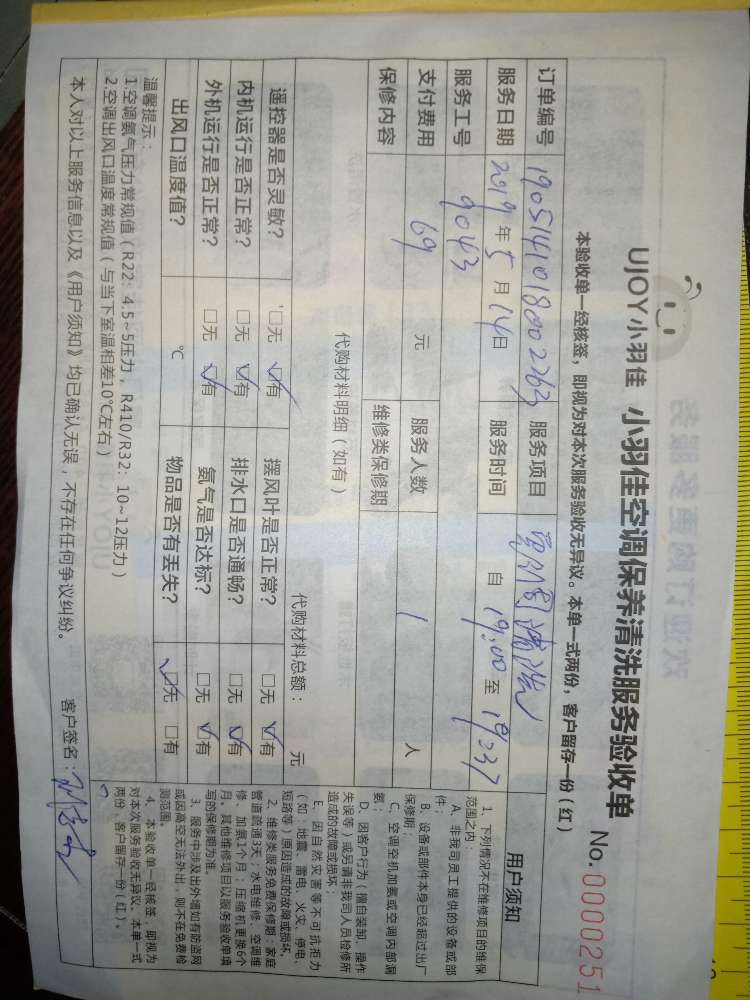 UJOY小羽佳 小羽佳空调保养清洗服务验收单 No.0000251
本验收单一经核签，即视为对本次服务验收无异议。本单一式两份，客户留存一份（红）
订单编号 1905141018002263 服务项目
服务日期 2019年5月14日 服务时间 自 19:00 至
服务工号 9043
支付费用 69 元 服务人数 1 人
保修内容 维修类保修期
代购材料明细（如有） 代购材料总额： 元
遥控器是否灵敏？ □无 ☑有 摆风叶是否正常？ □无 ☑有
内机运行是否正常？ □无 ☑有 排水口是否通畅？ □无 ☑有
外机运行是否正常？ □无 ☑有 氨气是否达标？ □无 ☑有
出风口温度值？ ℃ 物品是否有丢失？ ☑无 □有
温馨提示：
1空调氨气压力常规值（R22：4.5~5压力，R410/R32：10~12压力）
2空调出风口温度常规值（与当下室温相差10℃左右）
本人对以上服务信息以及《用户须知》均已确认无误，不存在任何争议纠纷。 客户签名：
用户须知
1、下列情况不在维修项目的维保
范围之内：
A、非我司员工提供的设备或部
件；
B、设备或部件本身已经超过出厂
保修期；
C、空调空机加氨或空调内部漏
氨；
D、因客户行为（擅自装卸、操作
失误等）或另请非我司人员检修所
造成的故障或损坏；
E、因自然灾害等不可抗拒力
（如：地震、雷电、火灾、停电、
短路等）原因造成的故障或损坏。
2、维修类服务免费保修期：家庭
管道疏通3天；水电维修、空调维
修、加氨1个月；压缩机更换6个
月，其他维修项目以服务验收单填
写的保修期为准。
3、服务中涉及出外墙如有防盗网
或因高空无法外出，则不在免费检
测范围。
4、本验收单一经核签，即视为
对本次服务验收无异议。本单一式
两份，客户留存一份（红）。